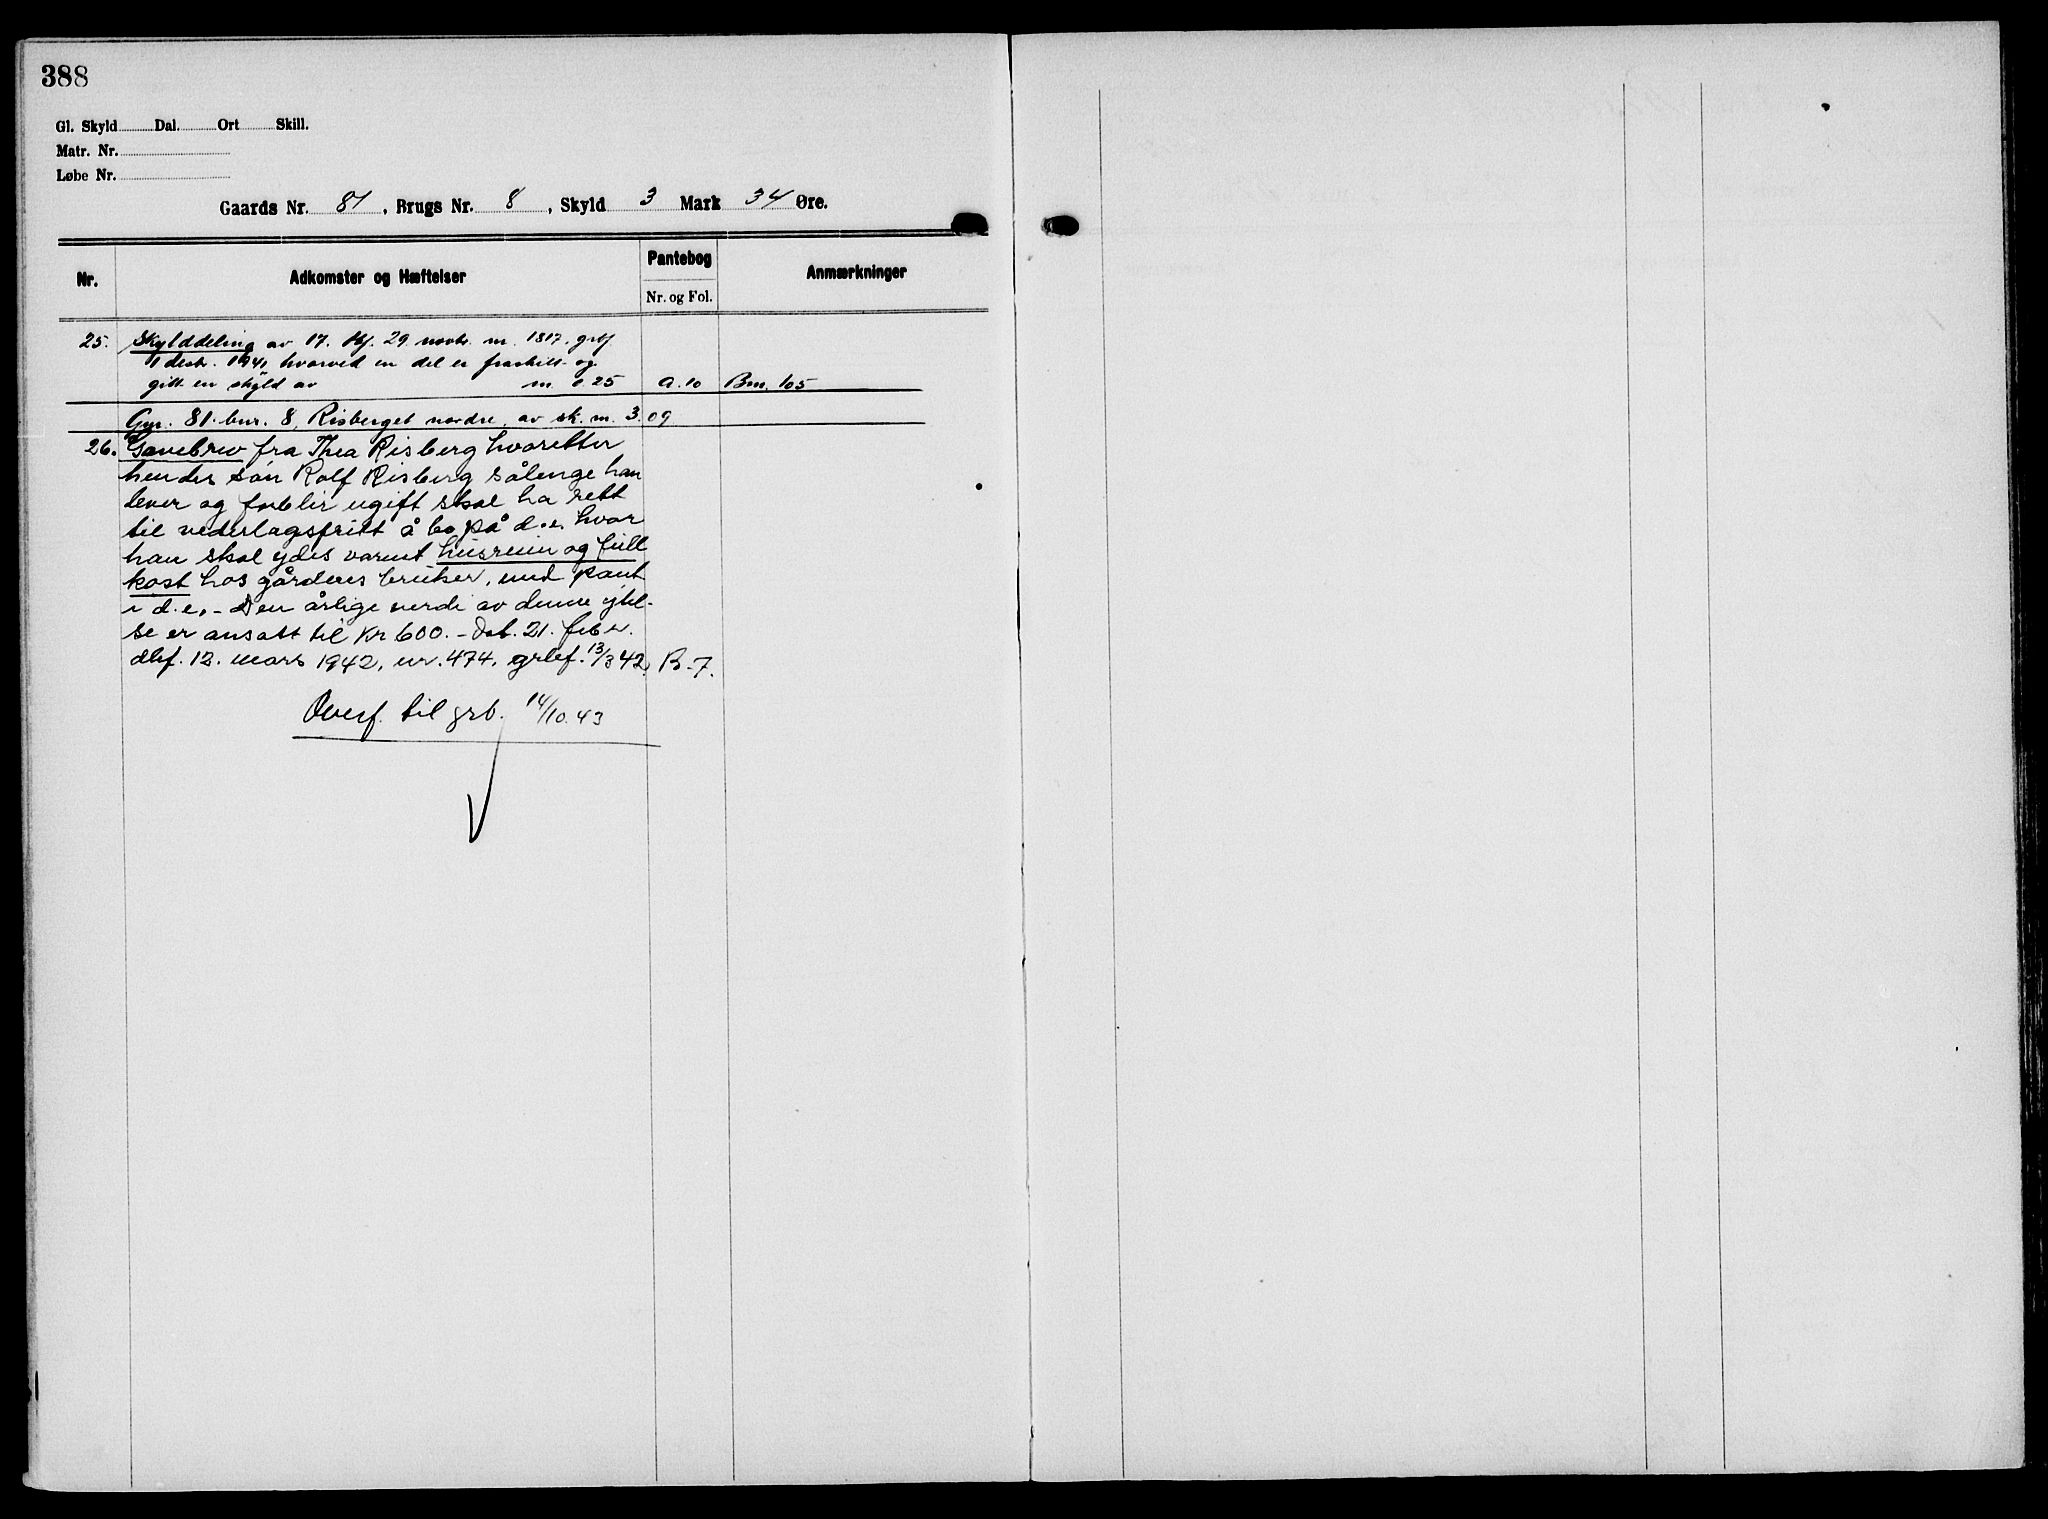 388
Gl. Skyld Dal. Ort Skill.
Matr. Nr.
Løbe Nr.
Gaards Nr. 81, Brugs Nr. 8, Skyld 3 Mark 34 Øre.
Nr. Adkomster og Hæftelser Pantebog Nr. og Fol. Anmærkninger
25. Skylddeling av 17. tbf. 29. novbr. nr. 1817. grbf
1 desbr. 1941, hvorved en del er fraskilt og
gitt en skyld av m. 0.25 A. 10 Bnr. 105
Gnr. 81. bnr. 8, Risberget nordre, av sk. m. 3.09
26. Gavebrev fra Thea Risberg hvoretter
hendes sön Rolf Risberg sålenge han
lever og forblir ugift skal ha rett
til vederlagsfritt å bo på d.e. hvor
han skal ydes varmt husrum og full
kost hos gårdens bruker, med pant
i d.e. - Den årlige verdi av denne ytel-
se er ansatt til Kr 600. - Dat. 21. febr.
dbf. 12. mars 1942, nr. 474, grbf. 13/3 42. B-7.
Overf. til grb. 14/10.43